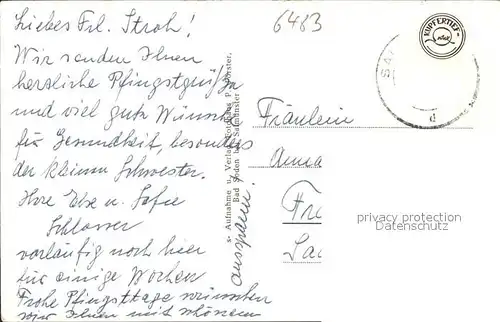 Liebes Frl. Stroh!
Wir senden Ihnen
herzliche Pfingstgrüße
und viel gute Wünsche
für Gesundheit, besonders
der kleinen Schwester.
Ihre Else u. Sofie
Schlosser
vorläufig noch hier
für einige Wochen
Frohe Pfingsttage wünschen
wir Ihnen mit schönem
ausspann!
6483
KUPFERTIEF-
d
Aufnahme u. Verlag
Bad Soden bei Salmünster
Fräulein
Anna
Fr
privacy protection
Datenschutz